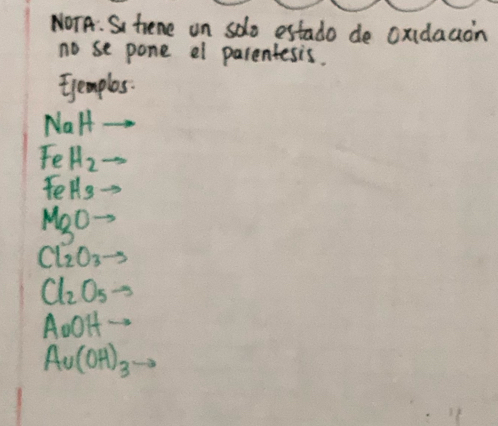 NOTA: Si tiene un solo estado de oxidación
no se pone el parentesis.
Ejemplos:
NaH →
FeH₂ →
FeH₃ →
MgO →
Cl₂O₃ →
Cl₂O₅ →
AuOH →
Au(OH)₃ →